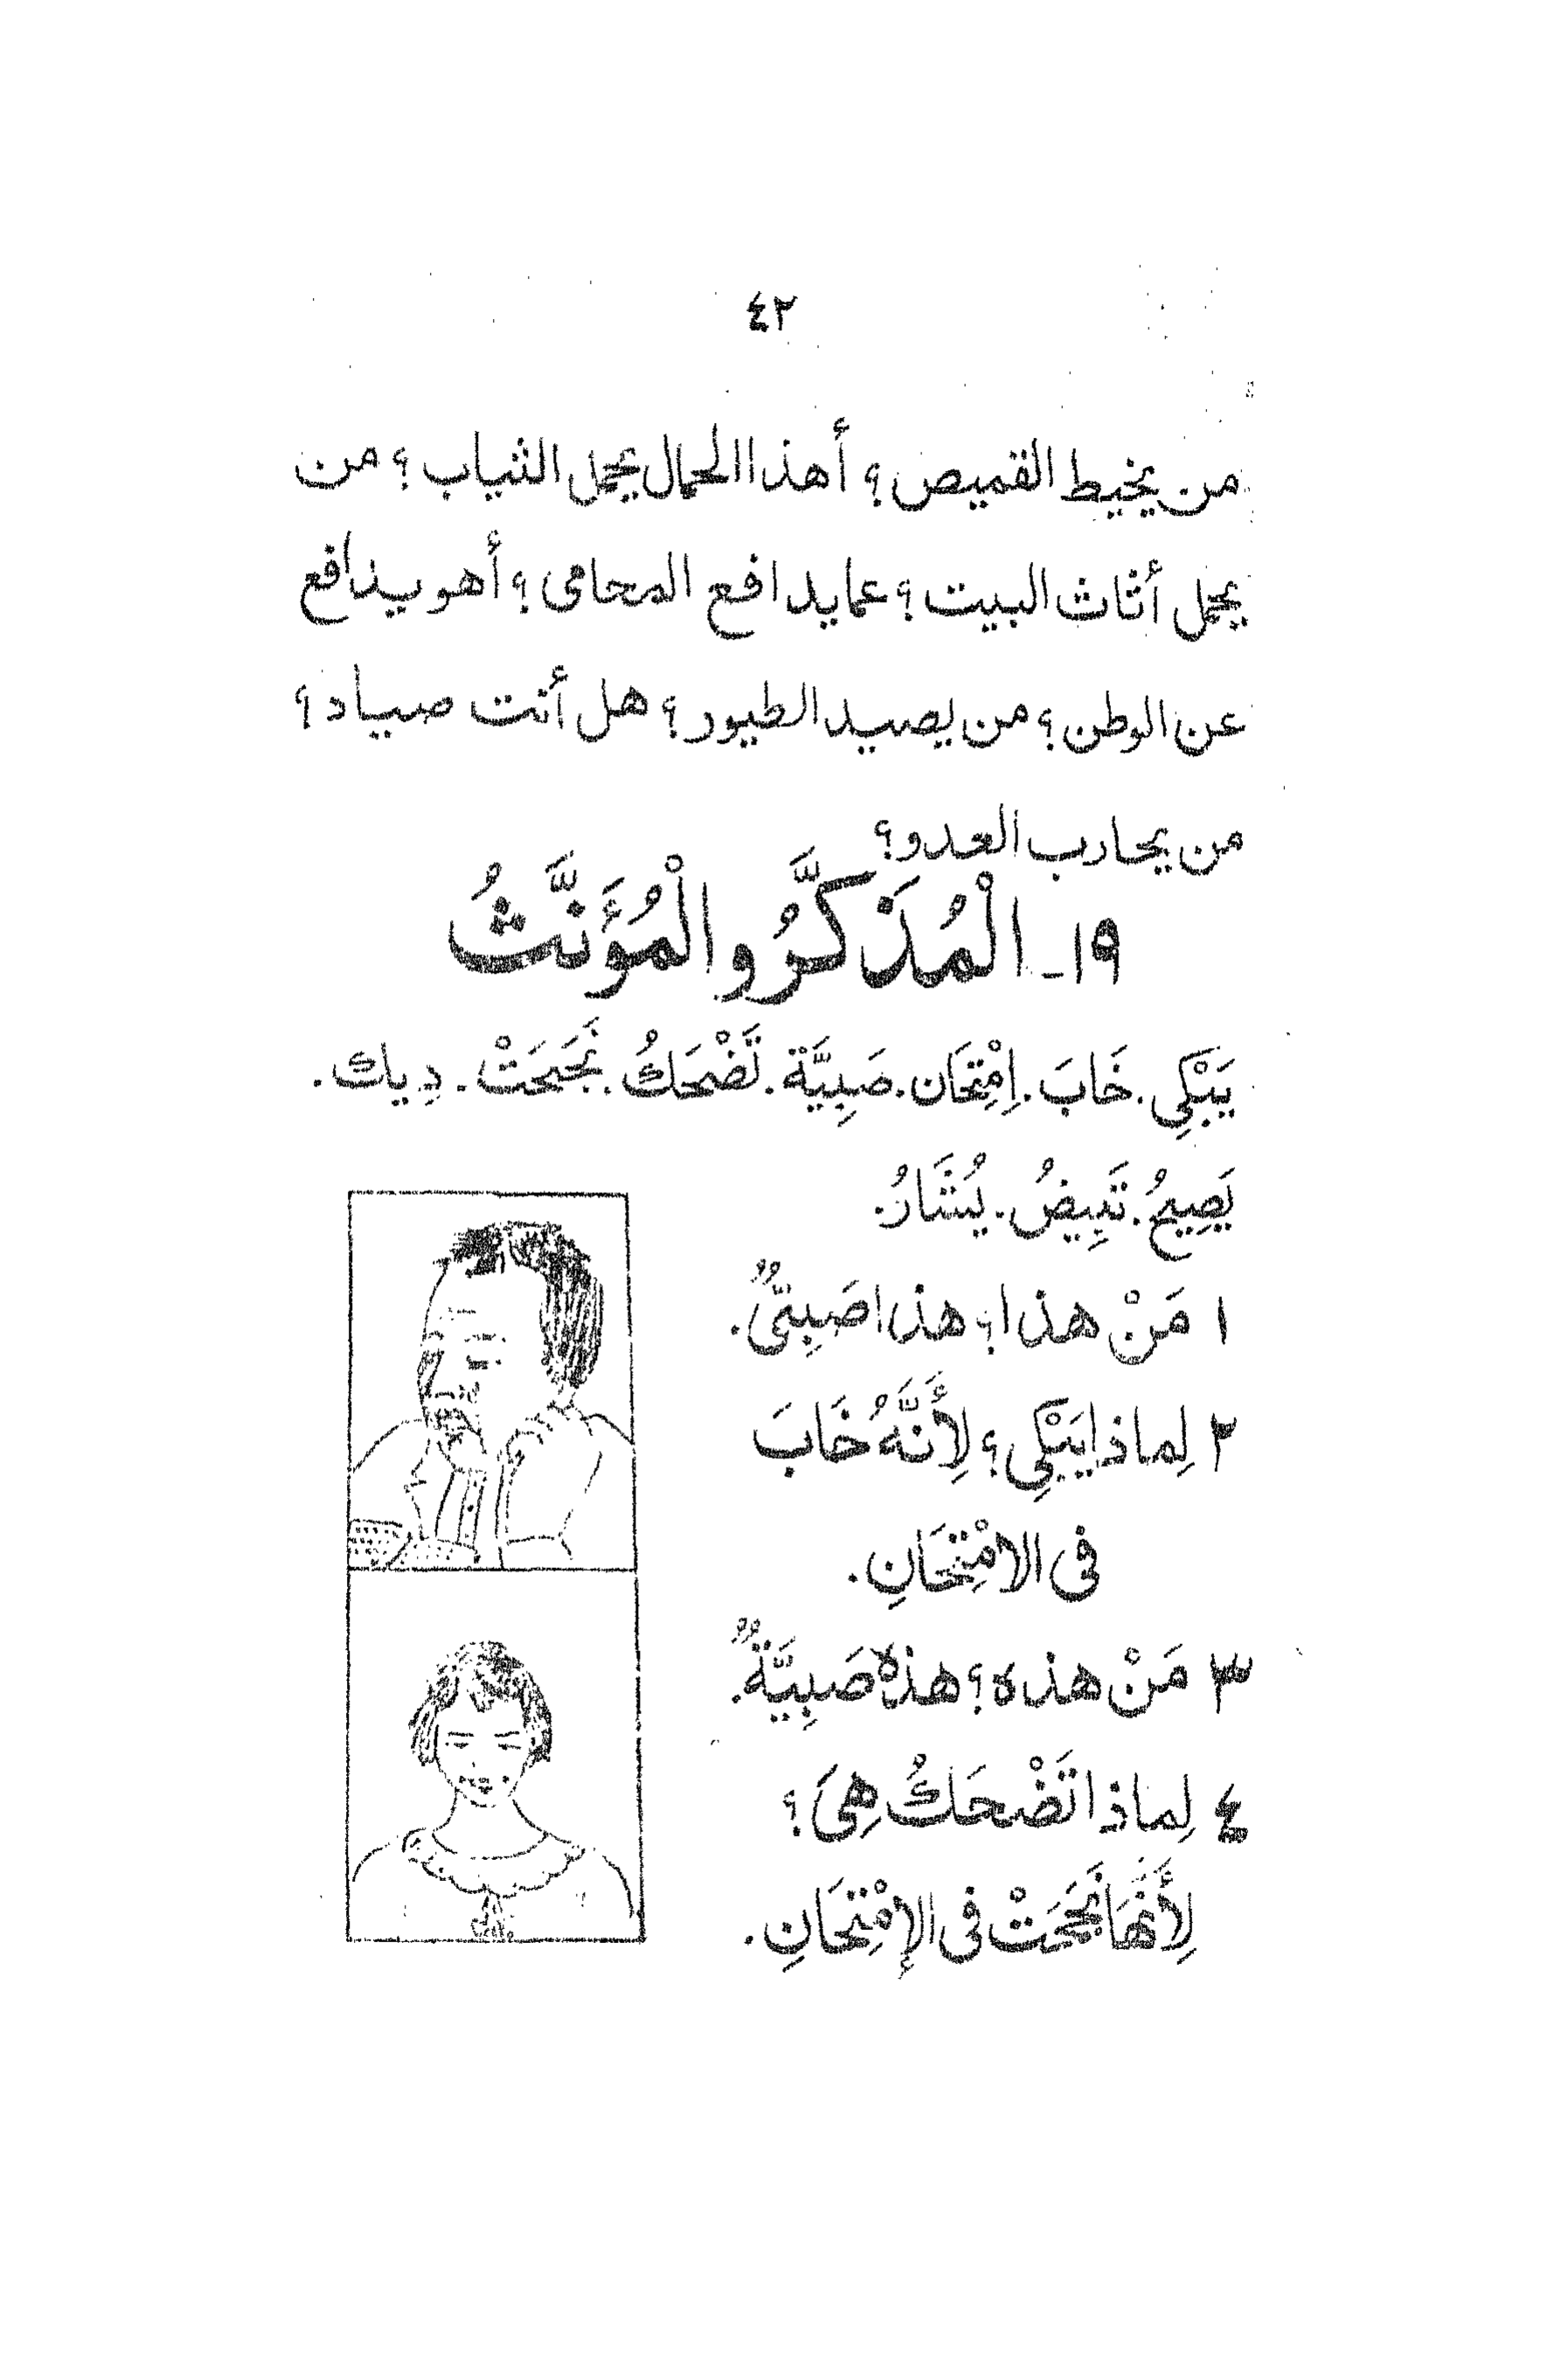 ٤٢
من يخيط القميص؟ أهذا الحمال يحمل الثياب؟ من
يحمل أثاث البيت؟ عما يدافع المحامى؟ أهو يدافع
عن الوطن؟ من يصيد الطيور؟ هل أنت صياد؟
من يحارب العدو؟
١٩- الْمُذَكَّرُ والْمُؤَنَّثُ
يَبْكِي. خَابَ. اِمْتِحَان. صَبِيَّة. تَضْحَكُ. نَجَحَتْ. دِيك.
يَصِيحُ. تَبِيضُ. يُشَارُ.
١ مَنْ هذا؟ هذا صَبِىٌّ.
٢ لِماذا يَبْكِي؟ لِأَنَّهُ خَابَ
فى الامْتِحَانِ.
٣ مَنْ هذه؟ هذِهِ صَبِيَّةٌ.
٤ لِماذا تَضْحَكُ هِىَ؟
لِأَنَّهَا نَجَحَتْ فى الإمْتِحَانِ.